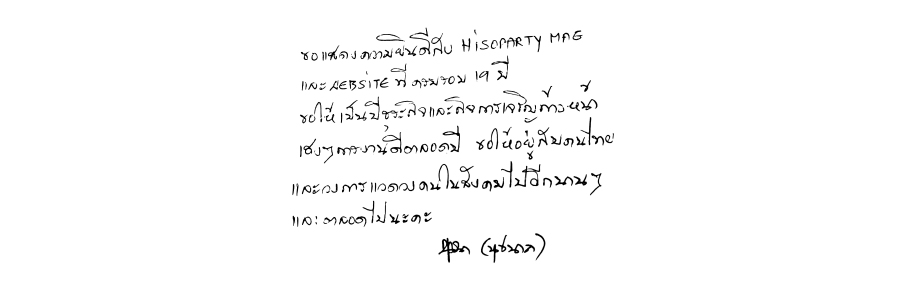 ขอแสดงความยินดีกับ HiSOPARTY MAG
และ WEBSITE ที่ครบรอบ 19 ปี
ขอให้เป็นปีธุรกิจและกิจการเจริญก้าวหน้า
เฮงๆการงานดีตลอดปี ขอให้อยู่กับคนไทย
และวงการแวดวงคนในสังคมไปอีกนานๆ
และตลอดไปนะคะ
(นุชนาถ)